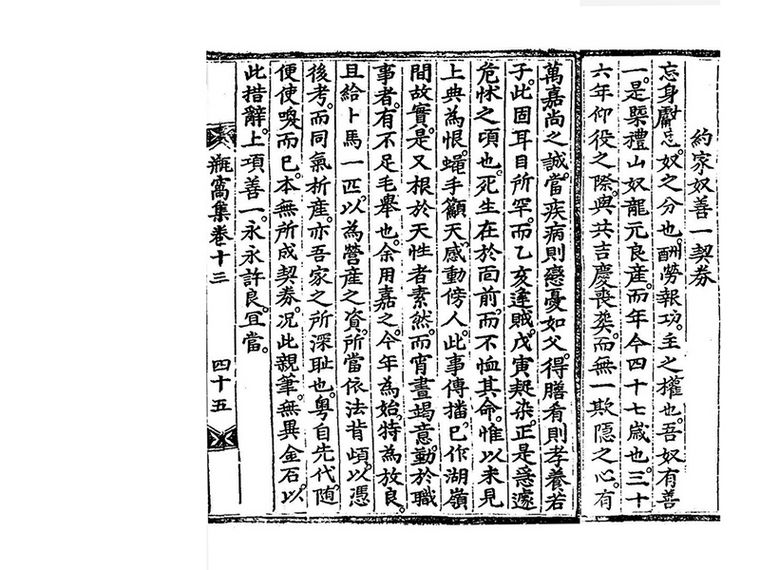 約家奴善一契券
忘身勵忠。奴之分也。酬勞報功。主之權也。吾奴有善
一。是槩禮山奴龍元良産。而年今四十七歲也。三十
六年仰役之際。與共吉慶喪葬。而無一欺隱之心。有
萬嘉尚之誠。當疾病則戀憂如父。得膳肴則孝養若
子。此固耳目所罕。而乙亥逢賊。戊寅染。正是急遽
危怵之頃也。死生在於面前。而不恤其命。惟以未見
上典為恨。蠅手籲天。感動傍人。此事傳播。已作湖嶺
間故實。是又根於天性者素然。而宵晝竭意。勤於職
事者。有不足毛舉也。余用嘉之。今年為始。特為放良。
且給卜馬一匹。以為營産之資。所當依法背頉。以憑
後考。而同氣析産。亦吾家之所深耻也。粤自先代。隨
便使喚而已。本無所成契券。況此親筆。無異金石。以
此措辭。上項善一。永永許良。宜當。
瓶窩集卷十三 四十五